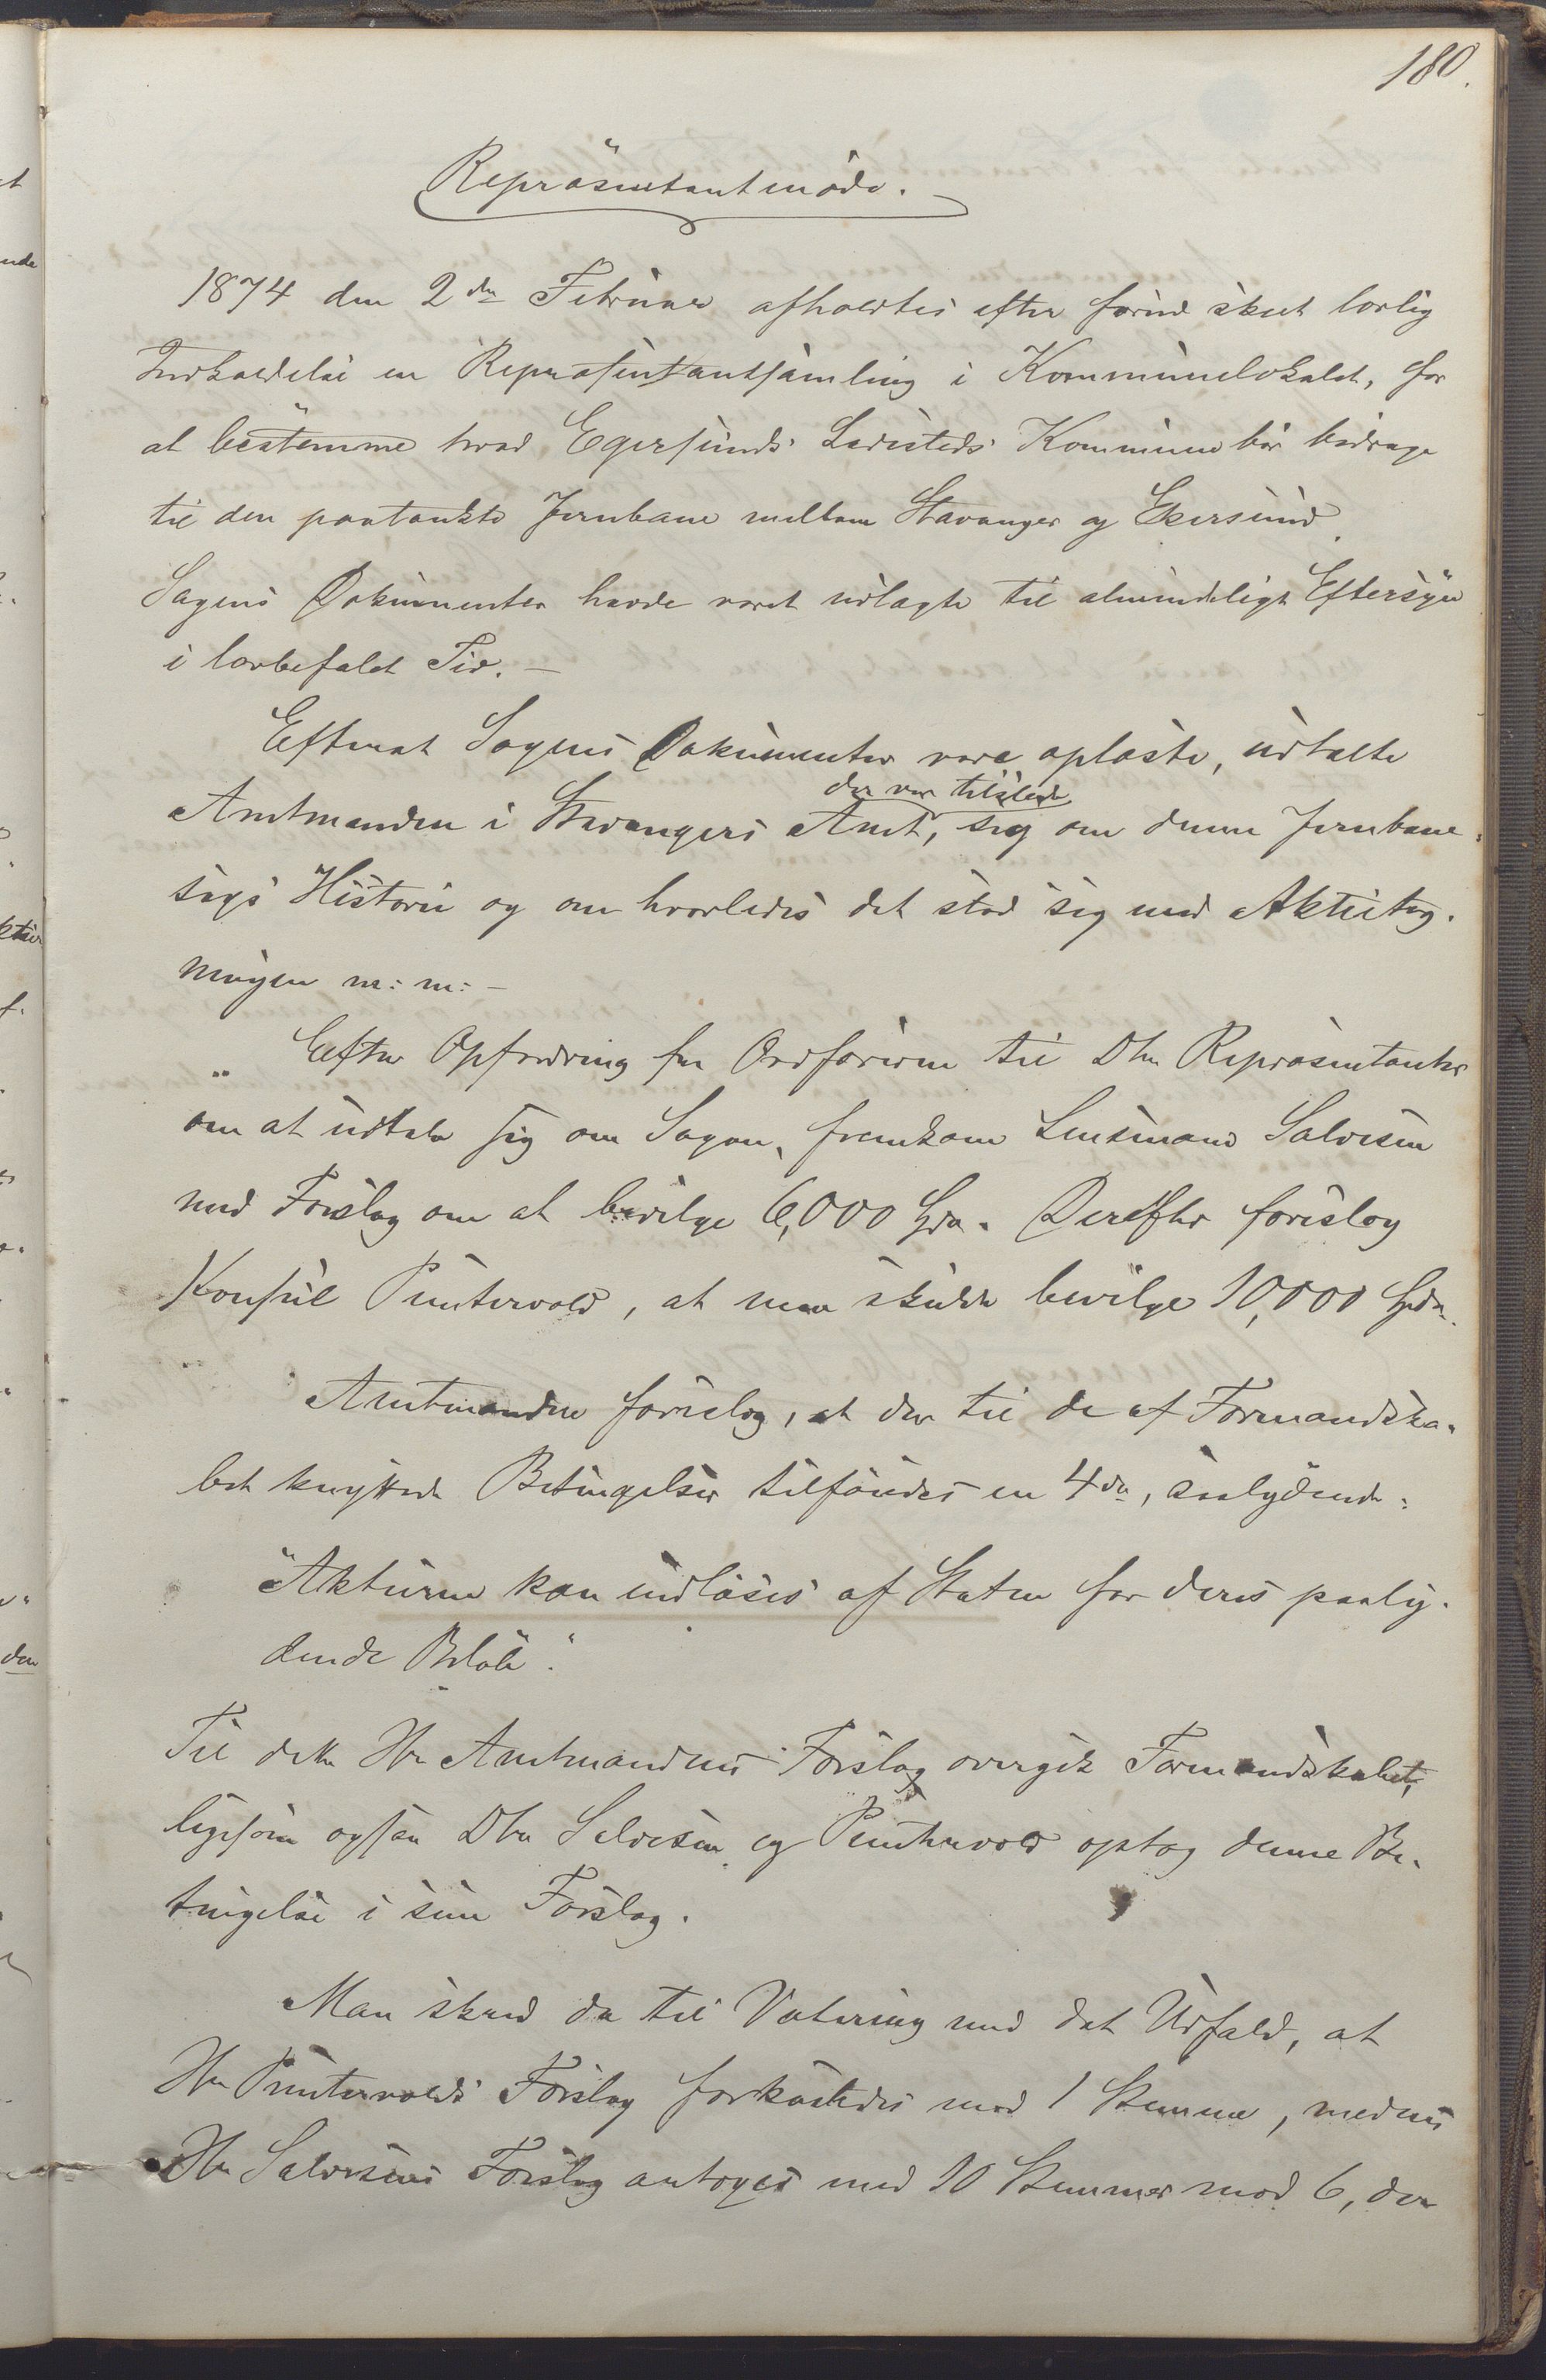 180.
Repräsentantmöde.
1874 den 2den Februar afholdtes efter forud skeet lovlig
Indkaldelse en Repræsentantsamling i Kommunelokalet, for
at bestemme hvad Egersunds Ladesteds Kommune bör bidrage
til den paatænkte Jernbane mellem Stavanger og Ekersund.
Sagens Dokumenter havde været udlagte til almindeligt Eftersyn
i lovbefalet Tid. —
Efterat Sagens Dokumenter vare oplæste, udtalte
der var tilstede
Amtmanden i Stavangers Amt, sig om denne Jernbane-
sags Historie og om hvorledes det stod sig med Aktieteg-
ningen m: m: —
Efter Opfordring fra Ordföreren til Dhr Repræsentanter
om at udtale sig om Sagen, fremkom Lensmand Salvesen
med Forslag om at bevilge 6,000 Spd. Derefter foreslog
Konsul Puntervold, at man skulde bevilge 10,000 Spd.
Amtmanden foreslog, at der til de af Formandska-
bet knyttede Betingelser tilföiedes en 4de, saalydende:
"Aktierne kan indlöses af Staten for deres paaly-
dende Belöb".
Til dette Hr Amtmandens Forslag overgik Formandskabet,
ligesom ogsaa Dhr Salvesen og Puntervold optog denne Be-
tingelse i sine Forslag.
Man skred da til Votering med det Udfald, at
Hr Puntervolds Forslag forkastedes mod 1 Stemme, medens
Hr Salvesens Forslag antoges med 10 Stemmer mod 6, der